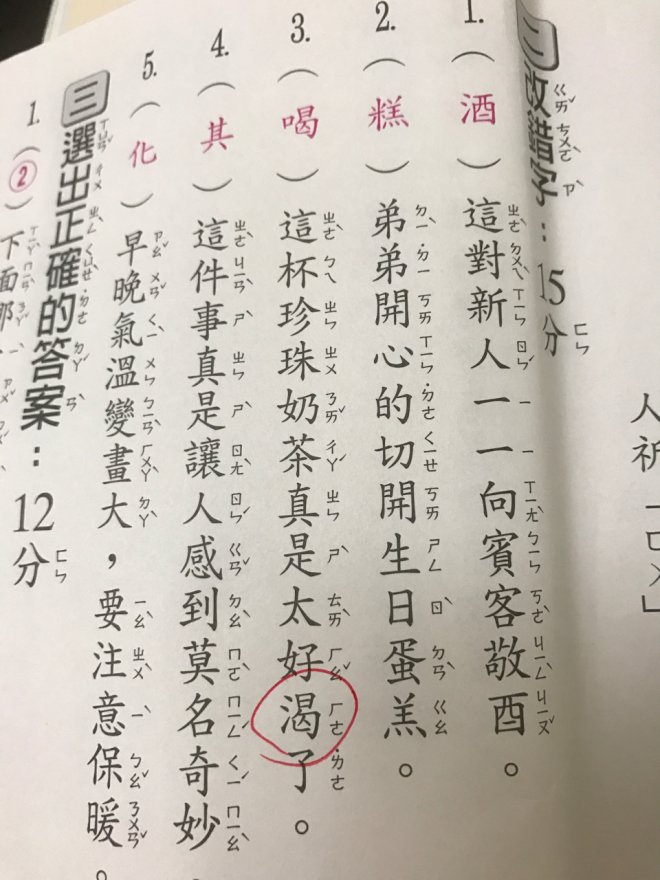 人祈「ㄈㄨ」
二 改錯字：15分
1.（酒）這對新人一一向賓客敬酉。
2.（糕）弟弟開心的切開生日蛋羔。
3.（喝）這杯珍珠奶茶真是太好渴了。
4.（其）這件事真是讓人感到莫名奇妙。
5.（化）早晚氣溫變畫大，要注意保暖。
三 選出正確的答案：12分
1.（②）下面那